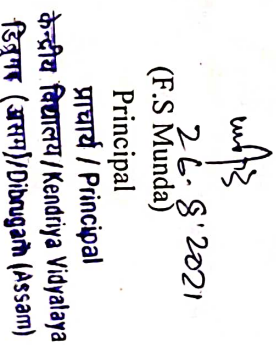 26.8.2021
(F.S Munda)
Principal
प्राचार्य / Principal
केन्द्रीय विद्यालय / Kendriya Vidyalaya
डिब्रुगढ़ (असम)/Dibrugarh (Assam)